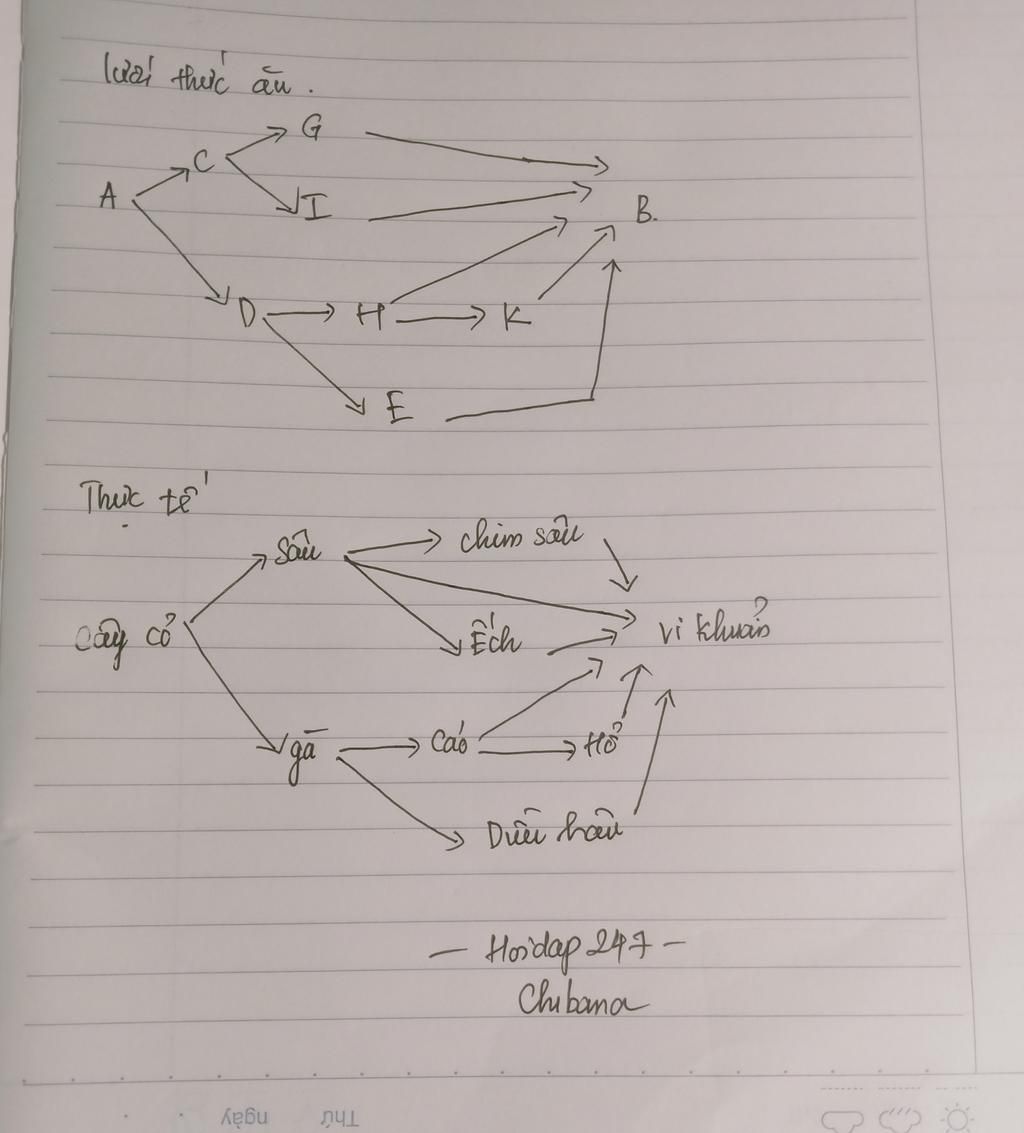 lưới thức ăn.
G
C
A
I
B.
D H K
E
Thực tế
Sâu chim sâu
Cây cỏ Ếch vi khuẩn
gà Cáo Hổ
Diều hâu
— Hoidap 247 —
Chibana
Thứ ngày